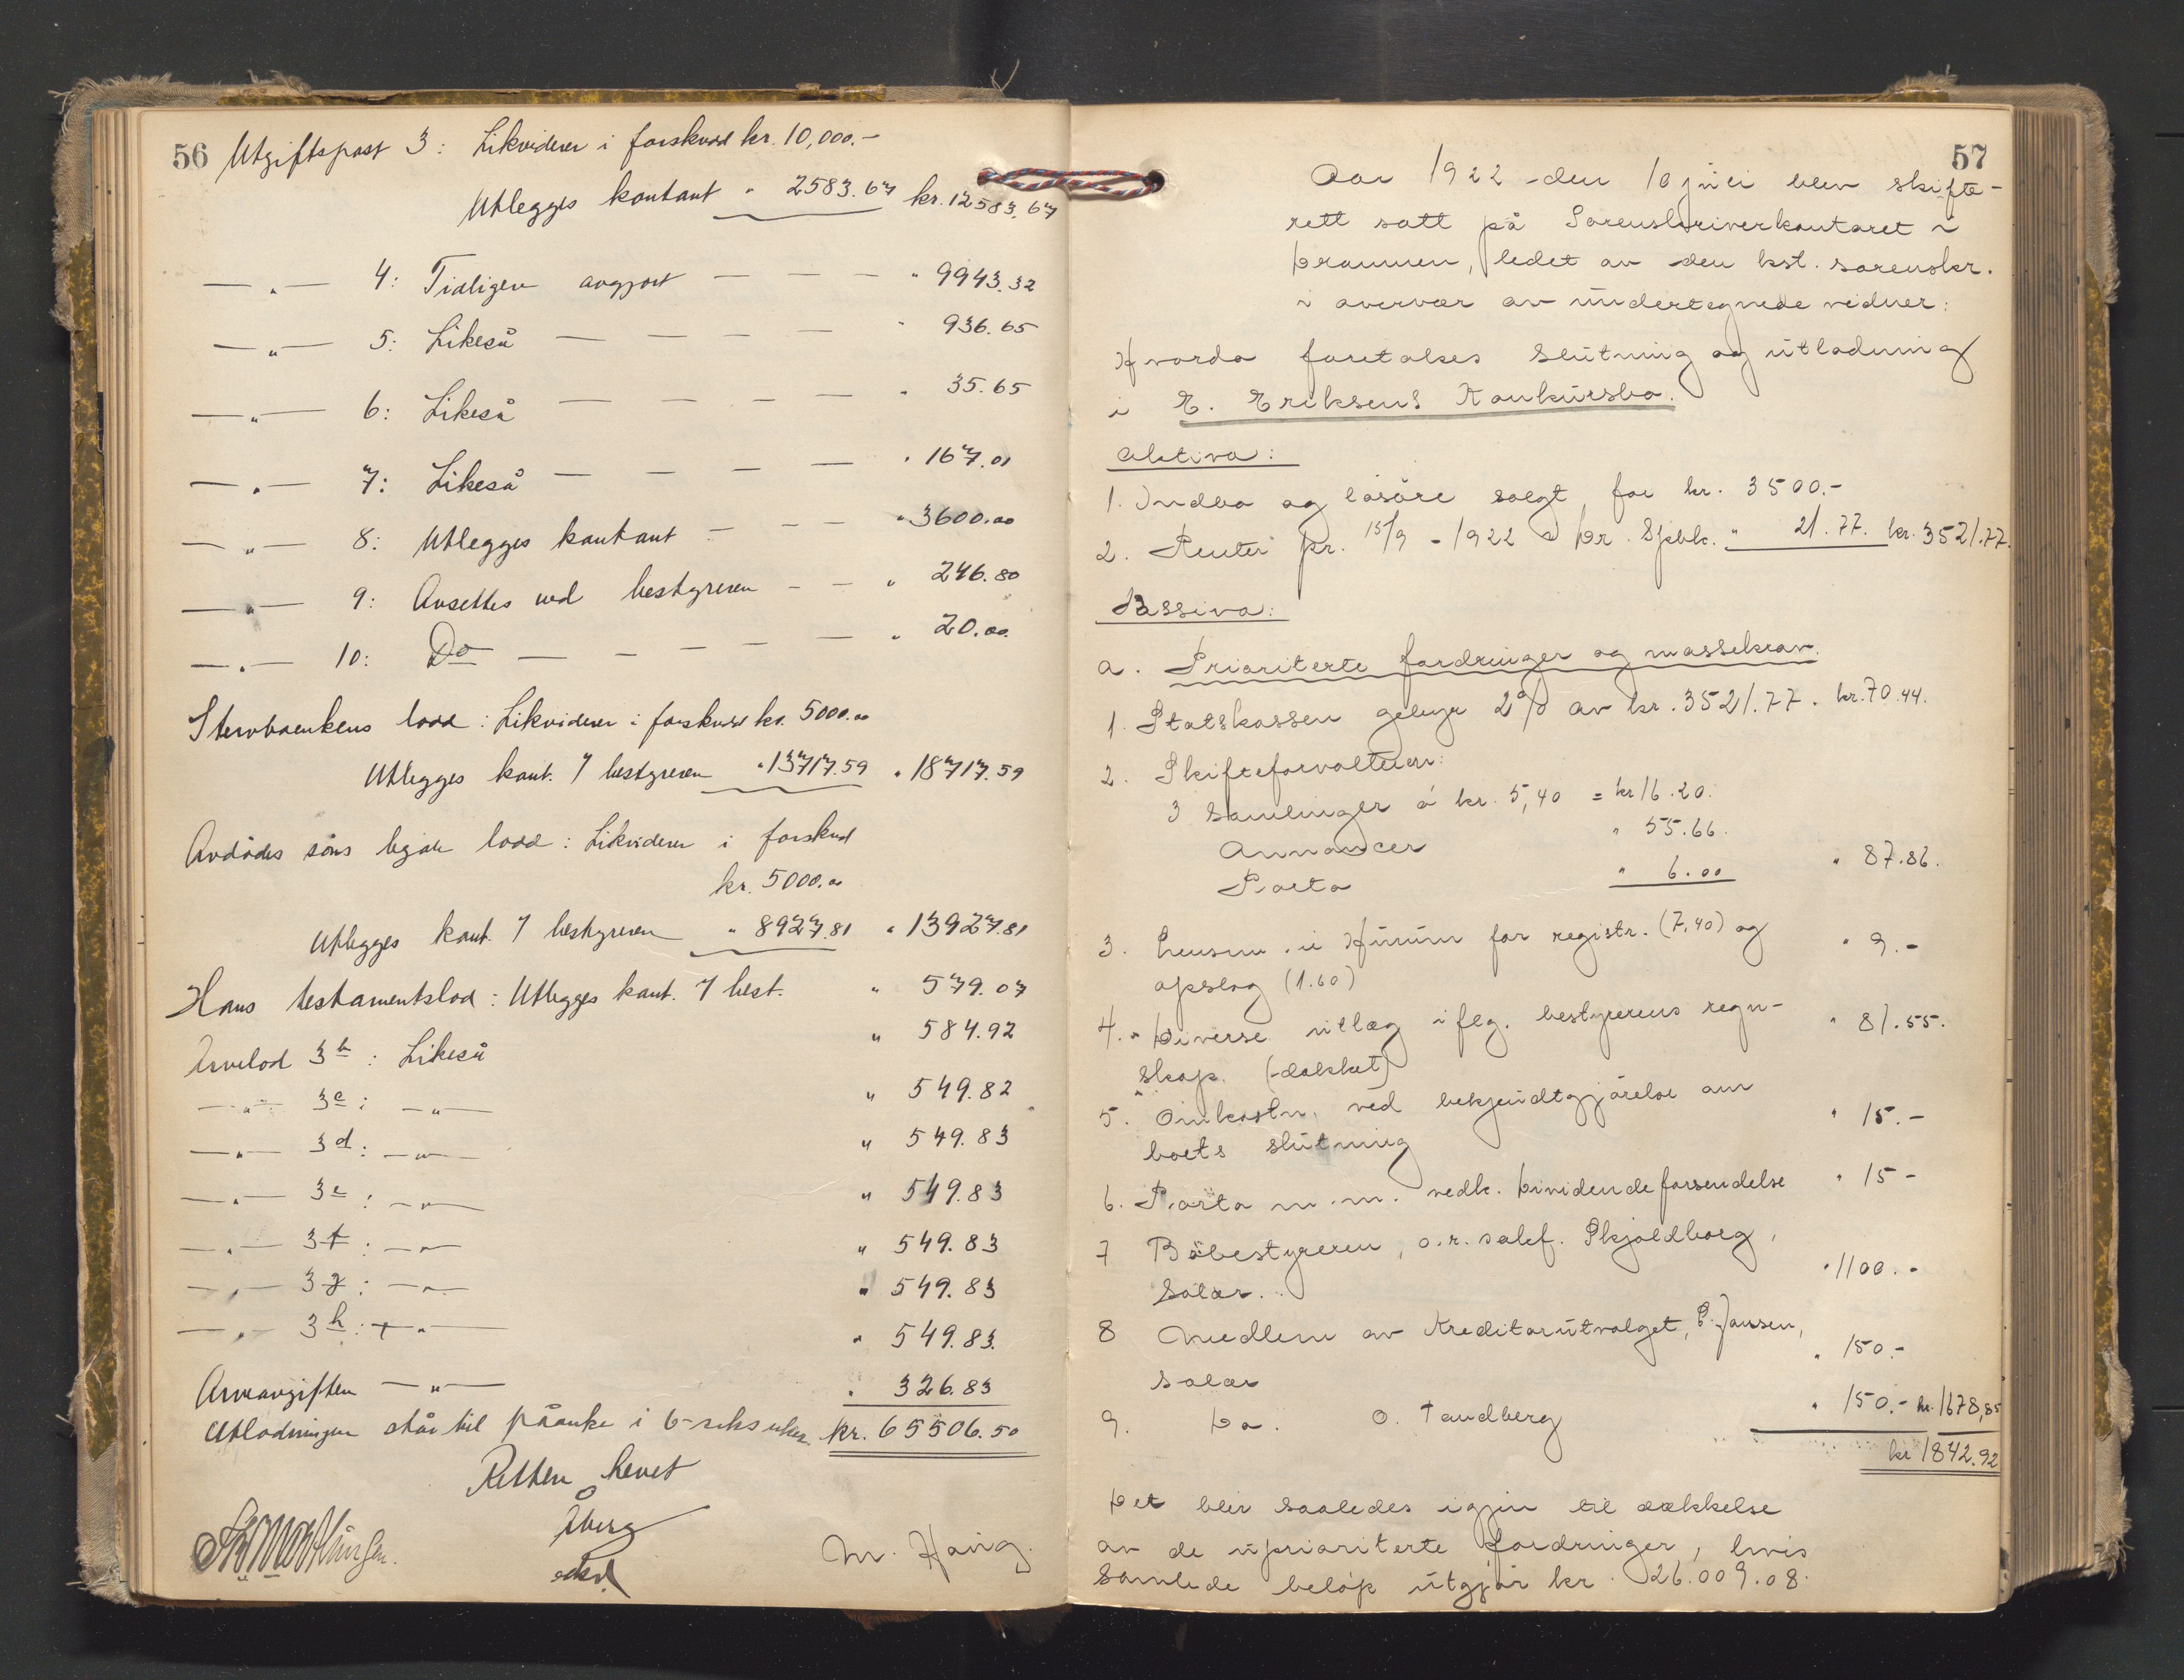 56 Utgiftspost 3: Likviderer i forskudd kr. 10,000.-
Utlegges kontant " 2583.67 kr. 12583.67
— " — 4: Tidligere avgjort — — — " 9943.32
— " — 5: Likeså — — — — " 936.65
— " — 6: Likeså — — — — " 35.65
— " — 7: Likeså — — — — " 167.01
— " — 8: Utlegges kontant — — — " 3600.00
— " — 9: Avsettes ved bestyreren — — " 246.80
— " — 10: Do — — — — — " 20.00
Stervboenkens lodd: Likviderer i forskudd kr. 5000.00
Utlegges kont. / bestyreren " 13717.59 " 18717.59
Avdødes søns legale lodd: Likviderer i forskud
kr. 5000.00
Utlegges kont. / bestyreren " 8927.81 " 13927.81
Hans testamentslod: Utlegges kont. / best. " 579.07
Arvelod 3b: Likeså " 584.92
— " — 3c: — " — " 549.82
— " — 3d: — " — " 549.83
— " — 3e: — " — " 549.83
— " — 3f: — " — " 549.83
— " — 3g: — " — " 549.83
— " — 3h: — " — " 549.83.
Arveavgiften — " — " 326.83
Utlodningen står til påanke i 6-seks uker. kr. 65506.50
Retten hevet
Åberg
M. Haug.
57
Aar 1922 den 10 juni blev skifte-
rett satt på Sorenskriverkontoret i
Drammen, ledet av den kst. sorenskr.
i overvær av undertegnede vidner:
Hvorda foretokes slutning og utlodning
i E. Eriksens Konkursbo.
Aktiva:
1. Indbo og løsøre solgt for kr. 3500.-
2. Renter pr. 15/9 - 1922 i Dr. Spbk. " 21.77. kr. 3521.77.
Passiva:
a. Prioriterte fordringer og massekrav.
1. Statskassen gebyr 2% av kr. 3521.77. kr. 70.44.
2. Skifteforvalteren:
3 samlinger á kr. 5,40 = kr 16.20.
Annoncer " 55.66.
Porto " 6.00 " 87.86.
3. Lensm. i Hurum for registr. (7,40) og " 9.-
opslag (1.60)
4. Diverse utlæg iflg. bestyrerens regn- " 81.55.
skap. (-dækket)
5. Omkostn. ved bekjendtgjørelse om
boets slutning " 15.-
6. Porto m.m. vedk. Dividendeforsendelse " 15-
7 Bobestyreren, o.r. sakf. Skjoldborg,
Salær. " 1100.-
8 Medlem av Kreditorutvalget, P. Jansen,
salær " 150.-
9. Do. O. Tandberg " 150.- kr. 1678,85
kr 1842.92
Det blir saaledes igjen til dækkelse
av de uprioriterte fordringer, hvis
samlede beløp utgjør kr. 26.009.08.